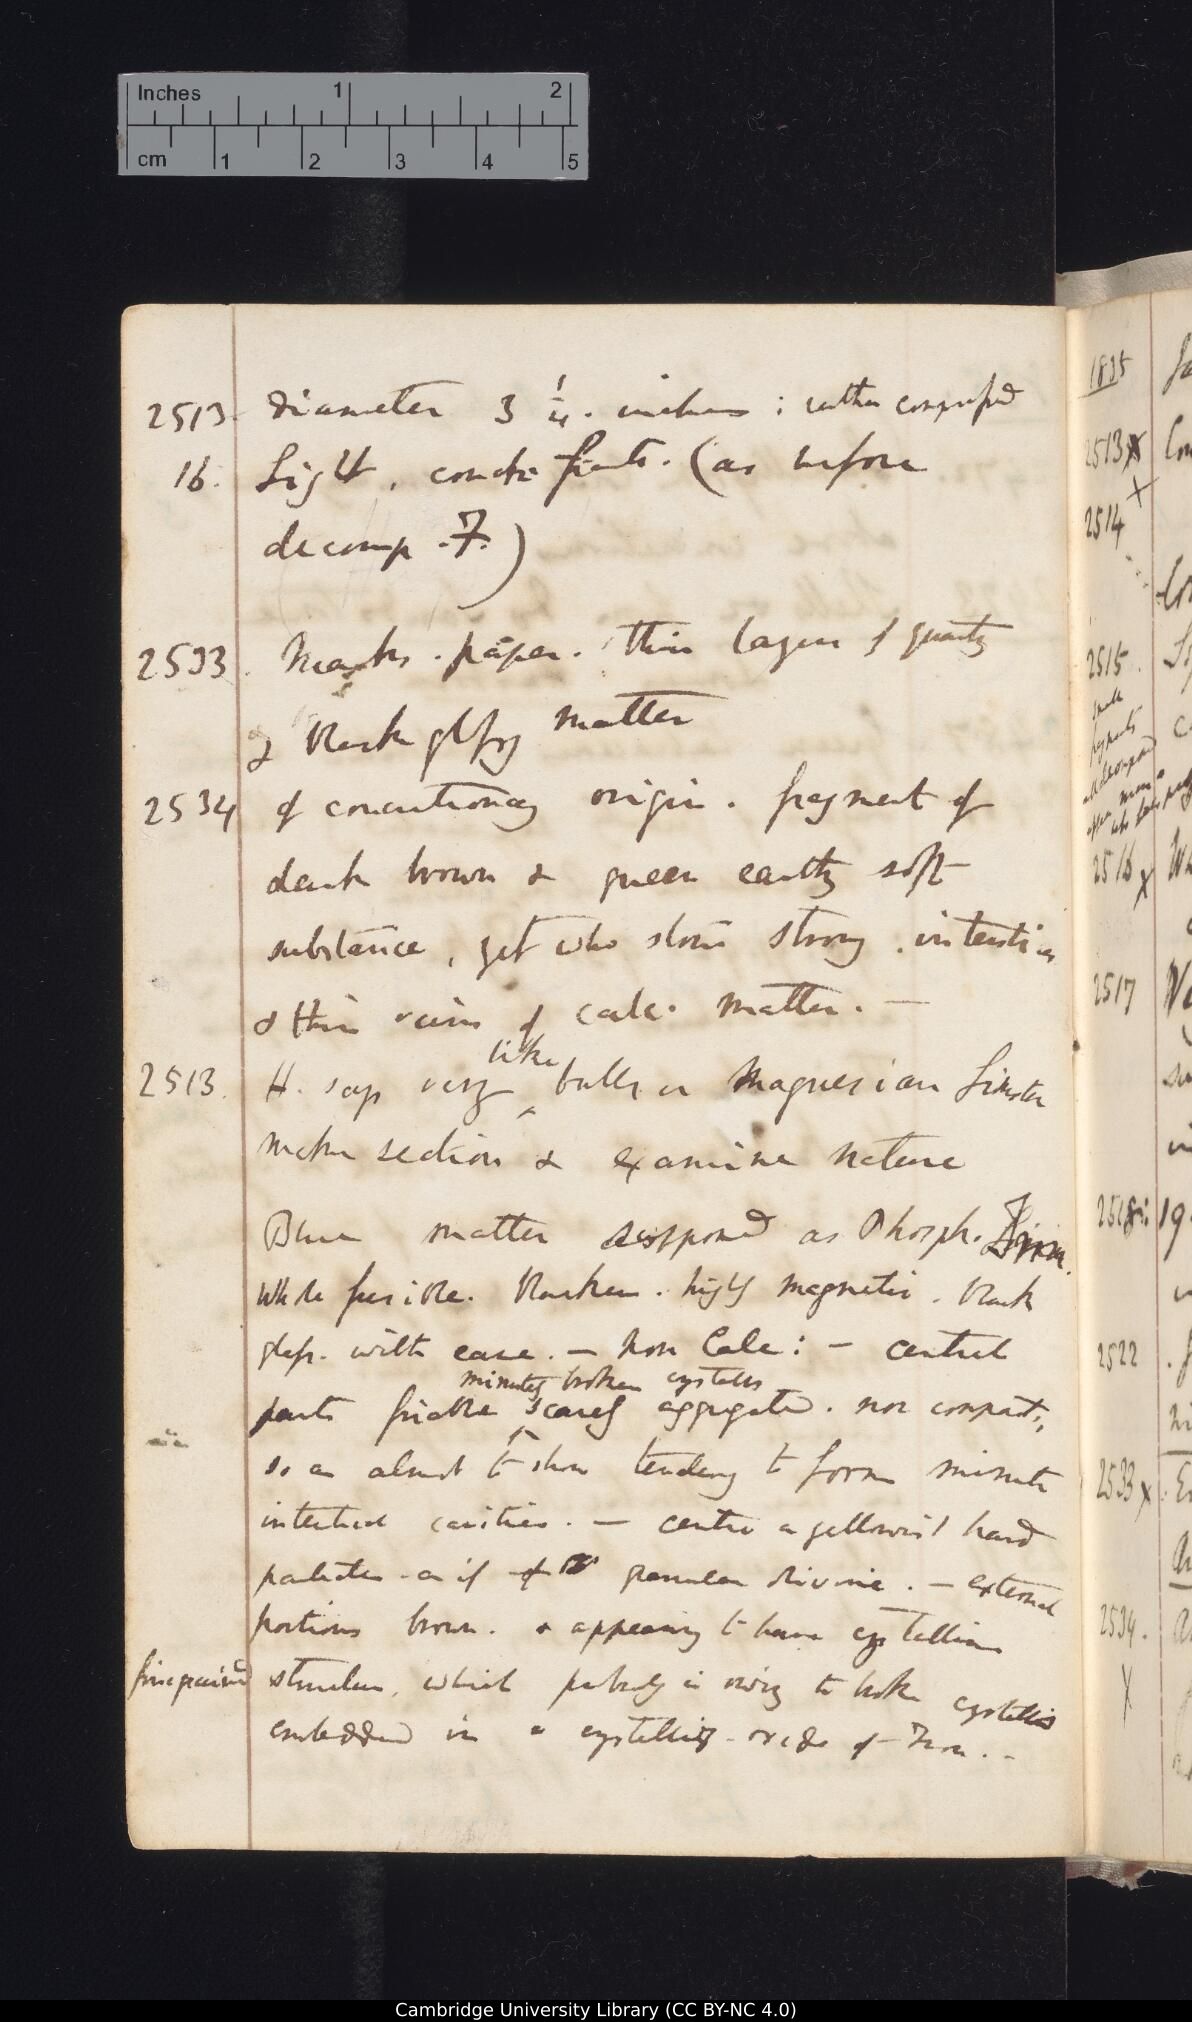 Inches 1 2
cm 1 2 3 4 5
2513. diameter 3 1/4. inches; rather compressed
16. Light, conch: fract. (as before
decomp. F.)
2533. Marks. paper. thin layers of quartz
& black glassy matter
2534 of concretionary origin. fragment of
dark brown & green earthy soft
substance, yet who stone strong. interstices
& thin veins of calc. matter. —
2513. H. says very like balls in Magnesian Limestone
make section & examine nature
Blue matter supposed as Phosph. Iron.
Whole fusible. blacken. highly magnetic. black
glass. with ease. — non Calc: — central
minutely broken crystals
parts friable scarcely aggregated. not compact,
so as almost to show tendency to form minute
internal cavities. — centre a yellowish hard
particles as if of granular olivine. — external
portions brown. & appearing to have crystalline
fine grained structure, which probably is owing to broken crystals
embedded in a crystalline oxide of Iron. —
1835
2513 x
2514 x
2515.
2516 x
2517
2518:
2522
2533 x
2534. x
Cambridge University Library (CC BY-NC 4.0)